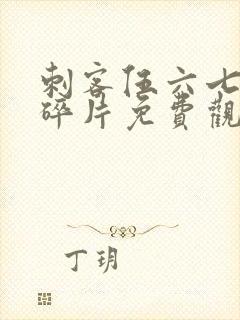 刺客伍六七
碎片免費觀
丁玥